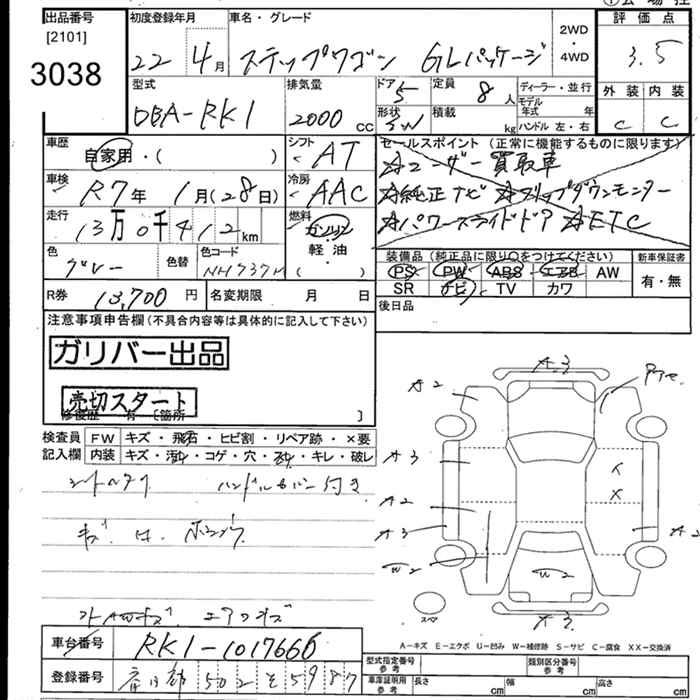 出品番号 初度登録年月 車名・グレード 2WD・4WD 評価点
[2101]
3038 22 4月 ステップワゴン GLパッケージ 3.5
型式 排気量 ドア 5 定員 8人 ディーラー・並行 外装 内装
DBA-RK1 2000 cc 形状 SW 積載 kg モデル年式 年 ハンドル 左・右 C C
車歴 自家用・( ) シフト AT セールスポイント (正常に機能するものに限ります)
☆ユーザー買取車
車検 R7年 1月(28日) 冷房 AAC ☆純正ナビ ☆フリップダウンモニター
走行 13万0千412km 燃料 ガソリン・軽油 ☆パワースライドドア ☆ETC
色 グレー 色替 色コード NH737M 装備品 (純正品に限り○をつけてください) 新車保証書
PS PW ABS エアB AW 有・無
R券 13,700円 名変期限 月 日 SR ナビ TV カワ
注意事項申告欄(不具合内容等は具体的に記入して下さい) 後日品
ガリバー出品
売切スタート
修復歴 有 [箇所 ]
検査員 FW キズ・飛石・ヒビ割・リペア跡・×要
記入欄 内装 キズ・汚れ・コゲ・穴・キレ・破レ
ハンドルカバー付き
A3
A2
A3
A2
A3
A2
W2
W2
A3
スペア
A-キズ E-エクボ U-凹み W-補修跡 S-サビ C-腐食 XX-交換済
車台番号 RK1-1017666
登録番号 春日部 502 そ 5987
型式指定番号 参考 類別区分番号 参考
車庫証明用 参考 長さ cm 幅 cm 高さ cm